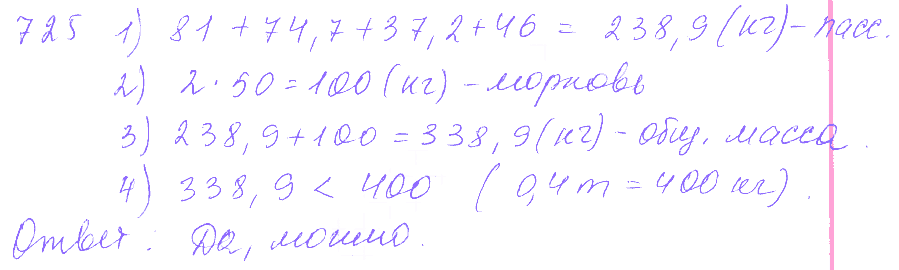 725 1) 81 + 74,7 + 37,2 + 46 = 238,9 (кг) - пасс.
2) 2 · 50 = 100 (кг) - морковь
3) 238,9 + 100 = 338,9 (кг) - общ. масса.
4) 338,9 < 400 (0,4 т = 400 кг).
Ответ: Да, можно.